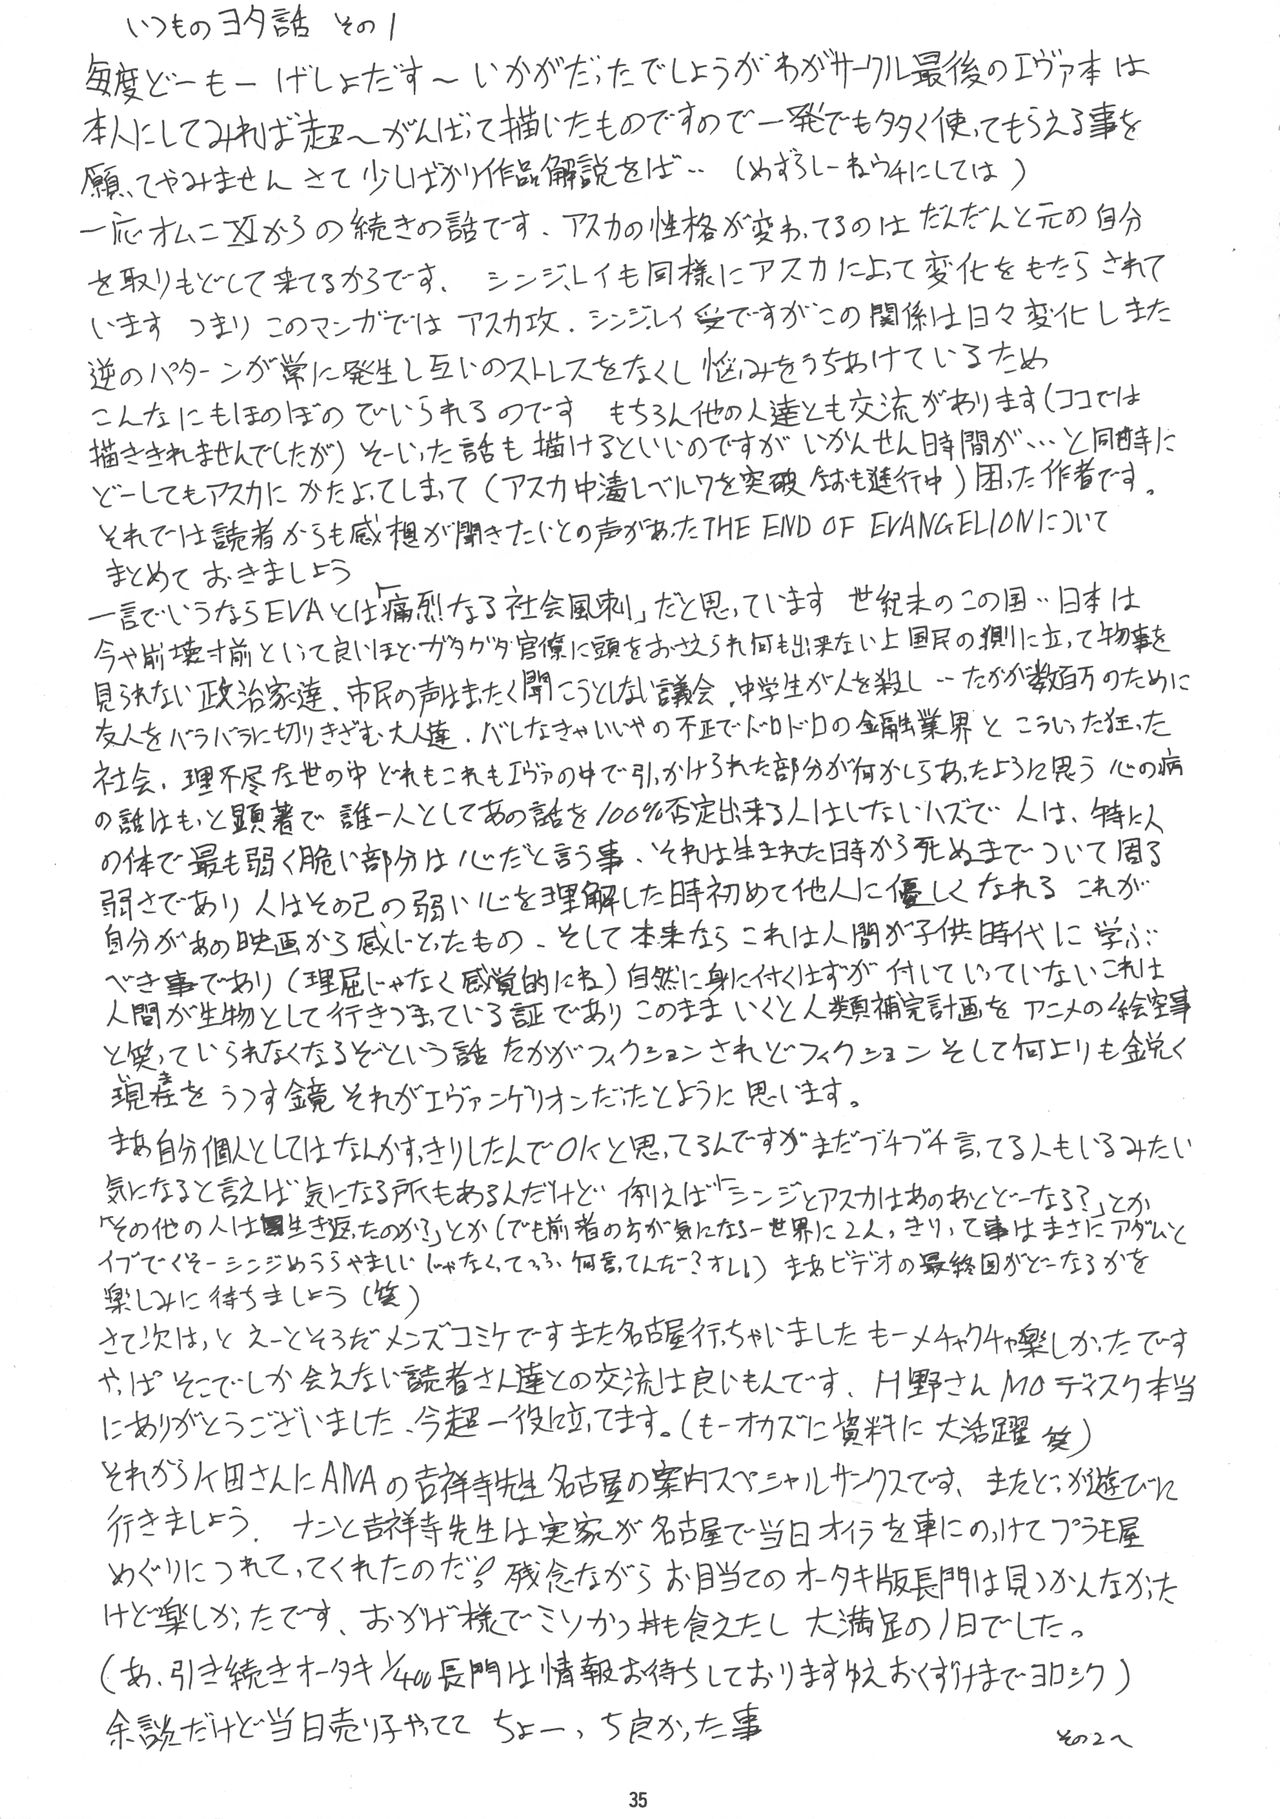 いつものヨタ話 その1
毎度どーもー げしょだす～ いかがだったでしょうか わがサークル最後のエヴァ本は
本人にしてみれば超～がんばって描いたものですので一発でも多く使ってもらえる事を
願ってやみません さて少しばかり作品解説をば‥ (めずらしーねウチにしては)
一応オムニⅪからの続きの話です、アスカの性格が変わってるのは だんだんと元の自分
を取りもどして来てるからです、 シンジ、レイも同様にアスカによって変化をもたらされて
います つまり このマンガでは アスカ攻、シンジ、レイ受ですがこの関係は日々変化しまた
逆のパターンが常に発生し互いのストレスをなくし悩みをうちあけているため
こんなにもほのぼのでいられるのです もちろん他の人達とも交流があります(ココでは
描ききれませんでしたが) そーいった話も描けるといいのですが いかんせん時間が…と同時に
どーしてもアスカに かたよってしまって(アスカ中毒レベル7を突破 なおも進行中)困った作者です。
それでは読者からも感想が聞きたいとの声があったTHE END OF EVANGELIONについて
まとめておきましょう
一言でいうならEVAとは「痛烈なる社会風刺」だと思っています 世紀末のこの国‥日本は
今や崩壊寸前といって良いほどガタガタ官僚に頭をおさえられ何も出来ない上国民の側に立って物事を
見られない政治家達、市民の声はまったく聞こうとしない議会、中学生が人を殺し‥たかが数百万のために
友人をバラバラに切りきざむ大人達、バレなきゃいいやの不正でドロドロの金融業界と こういった狂った
社会、理不尽な世の中 どれもこれもエヴァの中で引っかけられた部分が何かしらあったように思う 心の病
の話はもっと顕著で 誰一人としてあの話を100%否定出来る人はいないハズで 人は、特に人
の体で最も弱く脆い部分は心だと言う事、それは生まれた時から死ぬまでついて周る
弱さであり 人はその己の弱い心を理解した時初めて他人に優しくなれる これが
自分があの映画から感じとったもの、そして本来ならこれは人間が子供時代に学ぶ
べき事であり(理屈じゃなく感覚的にね)自然に身に付くはずが付いていっていないこれは
人間が生物として行きづまっている証であり このまま いくと人類補完計画を アニメの絵空事
と笑っていられなくなるぞという話 たかがフィクションされどフィクション そして何よりも鋭く
現在をうつす鏡 それがエヴァンゲリオンだったとように思います。
まあ自分個人としてはなんかすっきりしたんでOKと思ってるんですがまだブチブチ言ってる人もいるみたい
気になると言えば気になる所もあるんだけど 例えば「シンジとアスカはあのあとどーなる?」とか
「その他の人は生き返ったのか?」とか(でも前者の方が気になるー世界に2人っきりって事はまさにアダムと
イブでくそーシンジめうらやましい じゃなくってっ 何言ってんだ?オレ) まあビデオの最終回がどーなるかを
楽しみに待ちましょう(笑)
さて次はっと えーとそうだメンズコミケです また名古屋行っちゃいました もーメチャクチャ楽しかったです
やっぱ そこでしか会えない読者さん達との交流は良いもんです、片野さんMOディスク本当
にありがとうございました、今超一役に立ってます。(もーオカズに資料に 大活躍 笑)
それから 田さんにANAの吉祥寺先生名古屋の案内スペシャルサンクスです、またどっか遊びに
行きましょう、 ナンと吉祥寺先生は実家が名古屋で当日オイラを車にのっけてプラモ屋
めぐりにつれてってくれたのだ! 残念ながらお目当てのオータキ版長門は見つかんなかった
けど楽しかったです、おかげ様でミソかつ丼も食えたし 大満足の1日でした。
(あ、引き続きオータキ1/400長門は情報お待ちしておりますゆえおくずけまでヨロシク)
余談だけど当日売り子やってて ちょーっち良かった事
その2へ
35